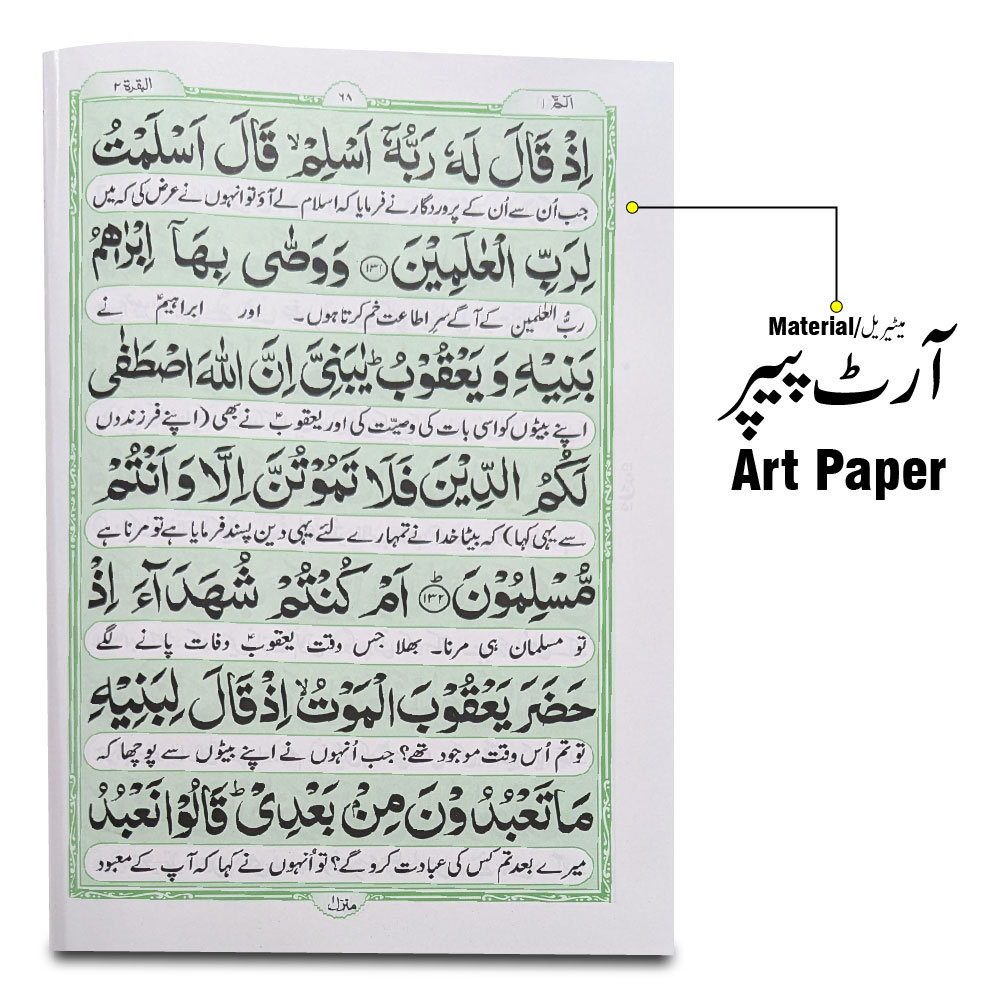 الٓمّٓ ۱
۶۸
البقرة ۲
اِذْ قَالَ لَهٗ رَبُّهٗۤ اَسْلِمْ ۙ قَالَ اَسْلَمْتُ
جب اُن سے اُن کے پروردگار نے فرمایا کہ اسلام لے آؤ تو انہوں نے عرض کی کہ میں
لِرَبِّ الْعٰلَمِيْنَ ۝۱۳۱ وَوَصّٰى بِهَاۤ اِبْرٰهٖمُ
ربُّ العٰلمین کے آگے سرِ اطاعت خم کرتا ہوں۔ اور ابراہیمؑ نے
بَنِيْهِ وَ يَعْقُوْبُ ؕ يٰبَنِيَّ اِنَّ اللّٰهَ اصْطَفٰى
اپنے بیٹوں کو اسی بات کی وصیّت کی اور یعقوبؑ نے بھی (اپنے فرزندوں
لَكُمُ الدِّيْنَ فَلَا تَمُوْتُنَّ اِلَّا وَ اَنْتُمْ
سے یہی کہا) کہ بیٹا خدا نے تمہارے لئے یہی دین پسند فرمایا ہے تو مرنا ہے
مُّسْلِمُوْنَ ؕ۝۱۳۲ اَمْ كُنْتُمْ شُهَدَآءَ اِذْ
تو مسلمان ہی مرنا۔ بھلا جس وقت یعقوبؑ وفات پانے لگے
حَضَرَ يَعْقُوْبَ الْمَوْتُ ۙ اِذْ قَالَ لِبَنِيْهِ
تو تم اُس وقت موجود تھے؟ جب اُنہوں نے اپنے بیٹوں سے پوچھا کہ
مَا تَعْبُدُوْنَ مِنْۢ بَعْدِيْ ؕ قَالُوْا نَعْبُدُ
میرے بعد تم کس کی عبادت کرو گے؟ تو اُنہوں نے کہا کہ آپ کے معبود
منزل ۱
Material/میٹیریل
آرٹ پیپر
Art Paper